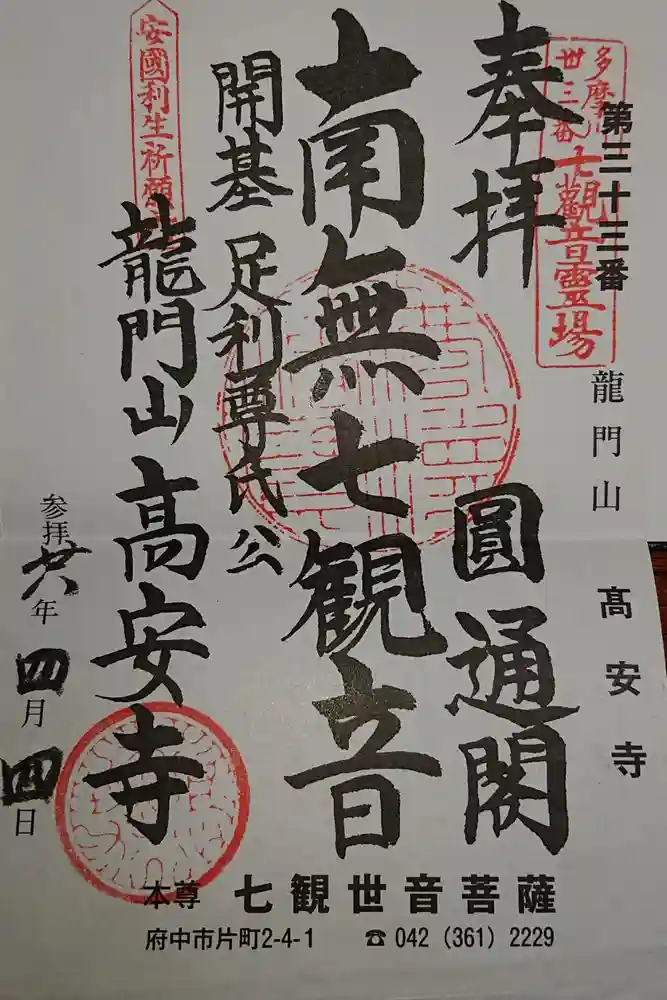 第三十三番
龍門山 髙安寺
多摩
卅三番
七觀音靈場
奉拝
圓通閣
南無七観音
開基 足利尊氏公
安國利生祈願
龍門山高安寺
参拝 廿六年 四月 四日
本尊 七観世音菩薩
府中市片町2-4-1 ☎ 042（361）2229